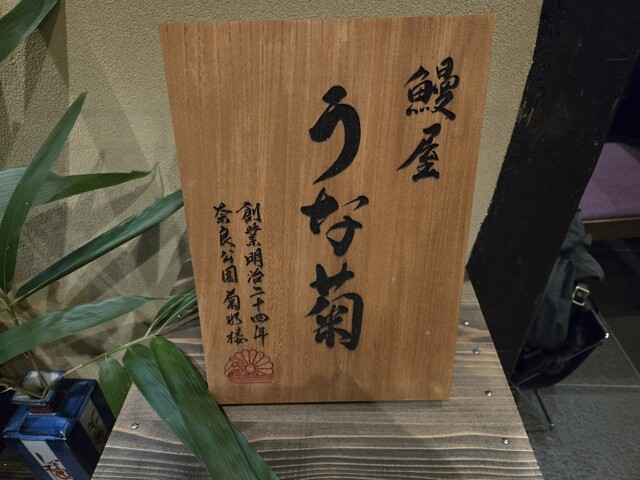 鰻屋
うな菊
創業明治二十四年
奈良公園 菊水楼